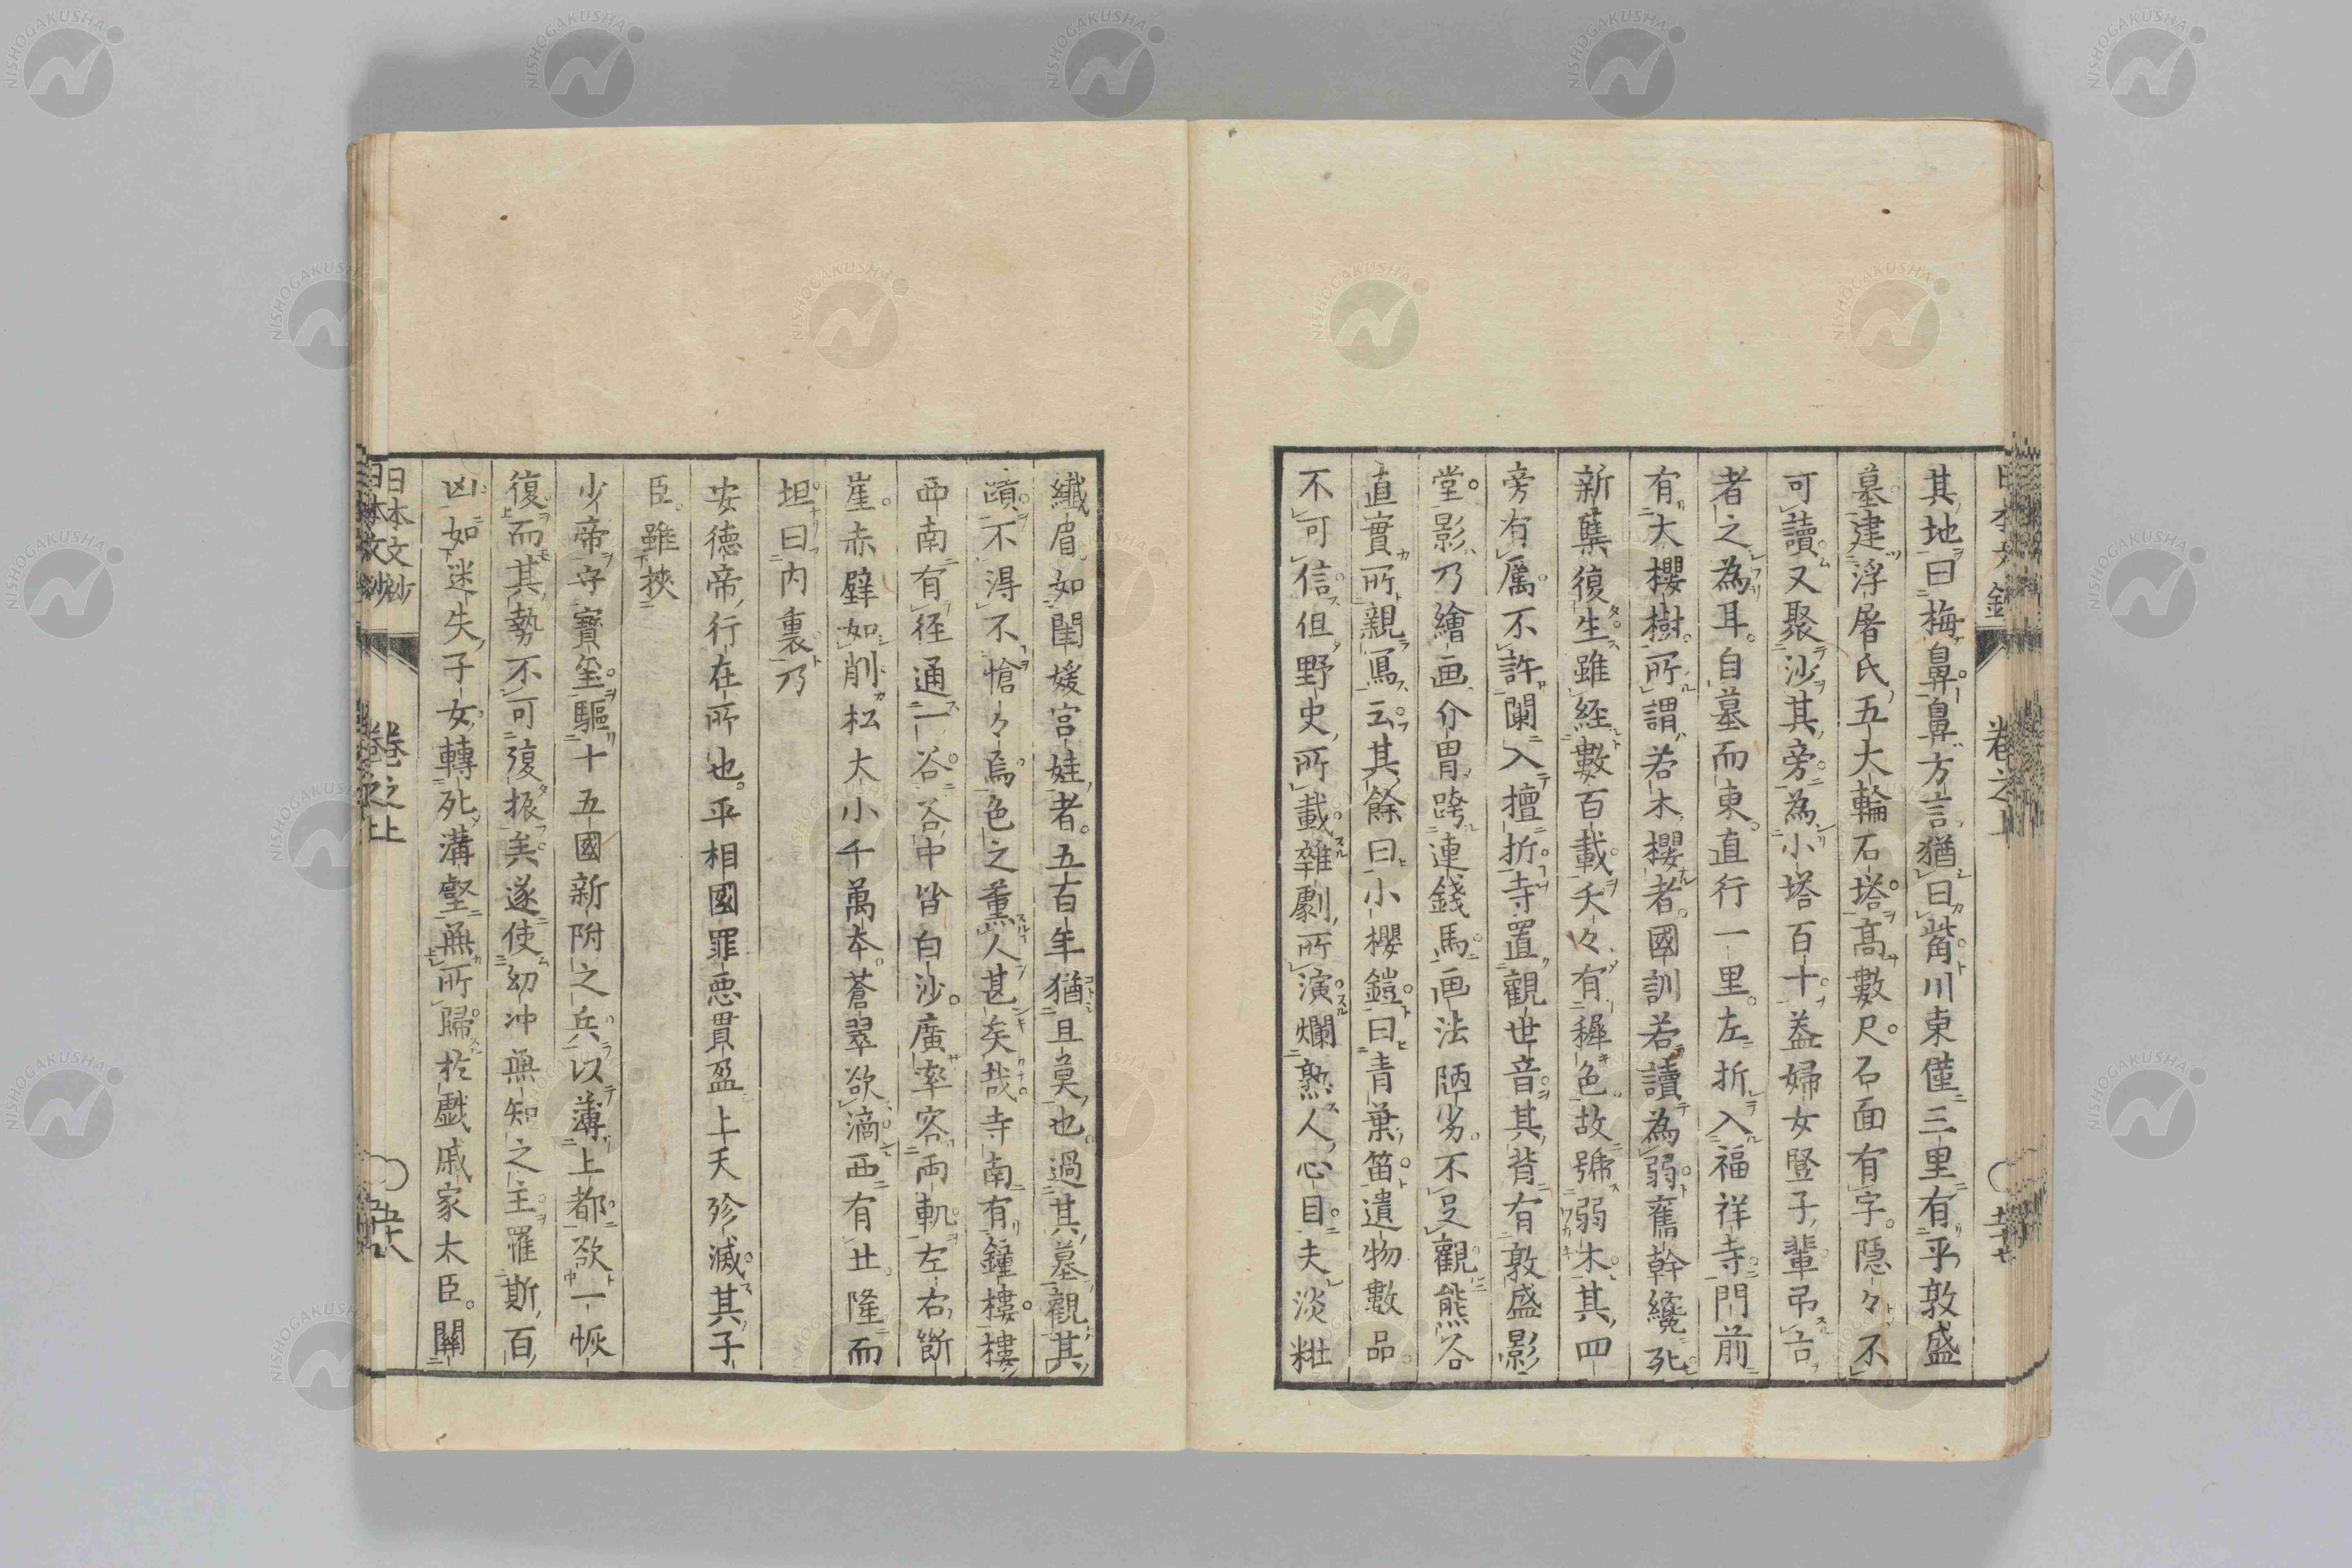 其地曰梅鼻鼻方言猶曰觜川東僅三里有平敦盛
墓建浮屠氏五大輪石塔高數尺石面有字隱々不
可讀又聚沙其旁為小塔百十蓋婦女豎子輩弔古
者之為耳自墓而東直行一里左折入福祥寺門前
有大櫻樹所謂若木櫻者國訓若讀為弱舊幹纔死
新蘖復生雖經數百載夭々有穉色故號弱木其四
旁有厲不許闌入擅折寺置觀世音其背有敦盛影
堂影乃繪画介冑跨連錢馬画法陋劣不足觀熊谷
直實所親寫云其餘曰小櫻鎧曰青葉笛遺物數品
不可信但野史所載雜劇所演爛熟人心目夫淡粧
卷之上
纖眉如閨媛宮娃者五百年猶且臭也過其墓觀其
蹟不得不愴々焉色之薰人甚矣哉寺南有鐘樓樓
西南有徑通一谷谷中皆白沙廣率容兩軌左右斷
崖赤壁如削松大小千萬本蒼翠欲滴西有丘隆而
坦曰内裏乃
安德帝行在所也平相國罪惡貫盈上天殄滅其子
臣雖挾
少帝守寶璽驅十五國新附之兵以薄上都欲一恢
復而其勢不可復振矣遂使幼冲無知之主罹斯百
凶如迷失子女轉死溝壑無所歸於戲戚家大臣關
日本文鈔
卷之上
五十八